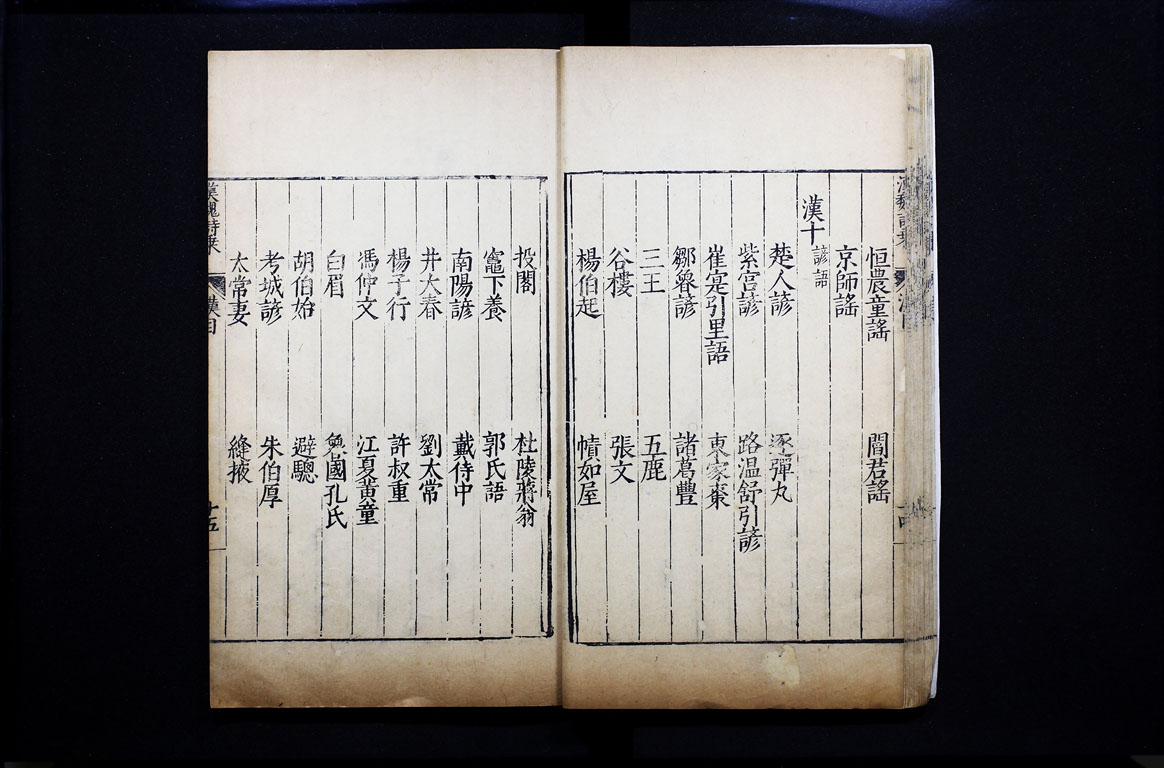 恒農童謠　閻君謠
京師謠
漢十 諺語
楚人諺　逐彈丸
紫宮諺　路温舒引諺
崔寔引里語　東家棗
鄒魯諺　諸葛豐
三王　五鹿
谷樓　張文
楊伯起　幘如屋
投閣　杜陵蔣翁
竈下養　郭氏語
南陽諺　戴侍中
井大春　劉太常
楊子行　許叔重
馮仲文　江夏黃童
白眉　魯國孔氏
胡伯始　避驄
考城諺　朱伯厚
太常妻　縫掖
漢魏詩乘　漢目　十五